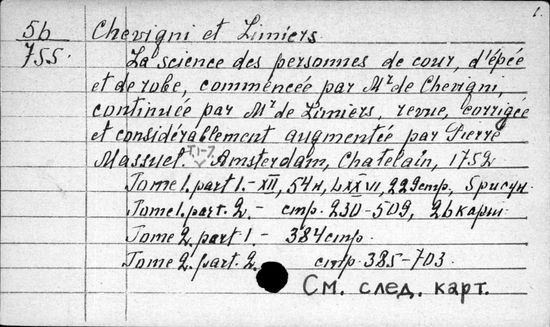 1.
5б Chevigni et Limiers.
755. La science des personnes de cour, d'épée
et de robe, commencée par Mr de Chevigni,
continuée par Mr de Limiers, revue, corrigée
et considérablement augmentée par Pierre
Massuel. T.1-7 Amsterdam, Chatelain, 1752
Tome 1. part 1. - XII, 54н, LXXVI, 229стр, 5рисун.
Tome 1. part. 2. - стр. 230-509, 26карт.
Tome 2. part 1. - 384стр.
Tome 2. part. 2. стр. 385-703.
См. след. карт.